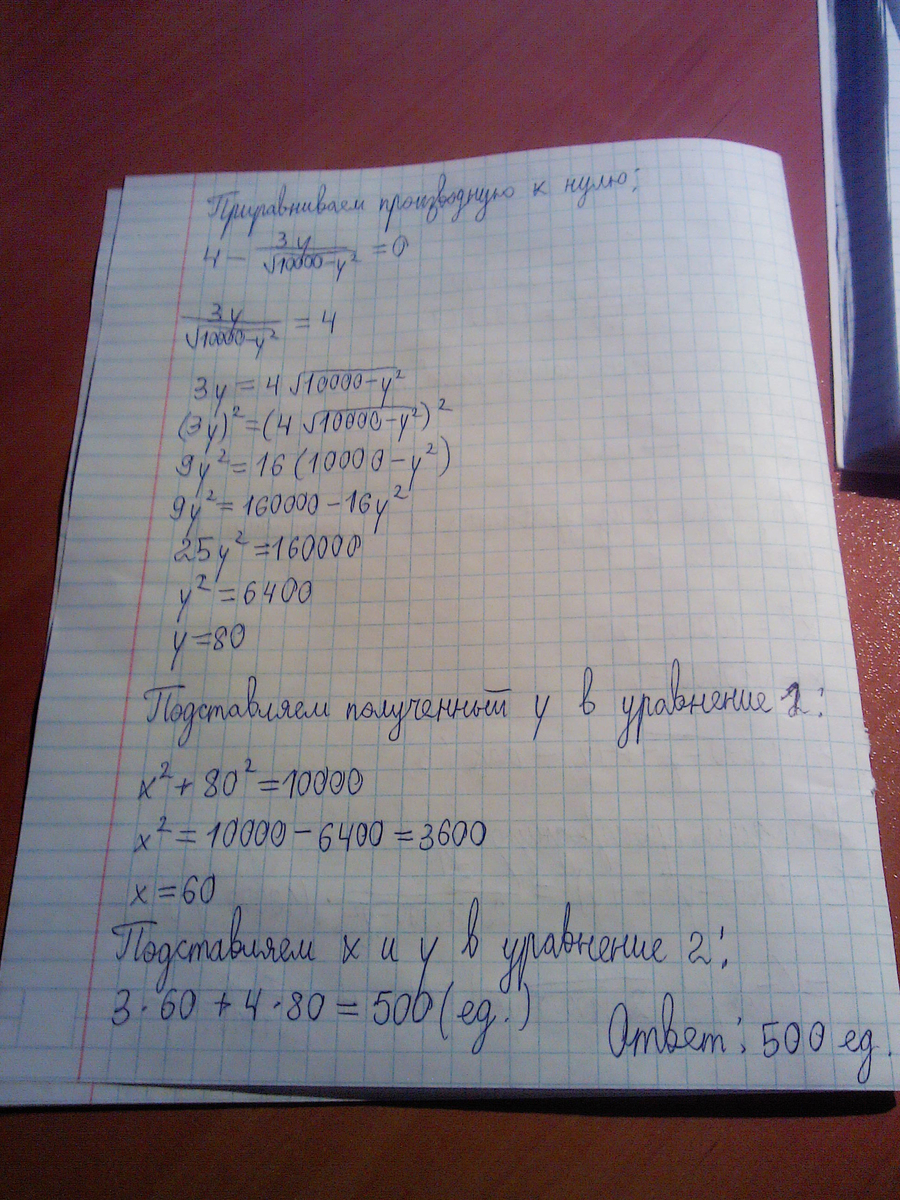 Приравниваем производную к нулю:
4 - 3y/√(10000-y²) = 0
3y/√(10000-y²) = 4
3y = 4√(10000-y²)
(3y)² = (4√(10000-y²))²
9y² = 16(10000-y²)
9y² = 160000 - 16y²
25y² = 160000
y² = 6400
y = 80
Подставляем полученный y в уравнение 1:
x² + 80² = 10000
x² = 10000 - 6400 = 3600
x = 60
Подставляем x и y в уравнение 2:
3·60 + 4·80 = 500 (ед.)
Ответ: 500 ед.